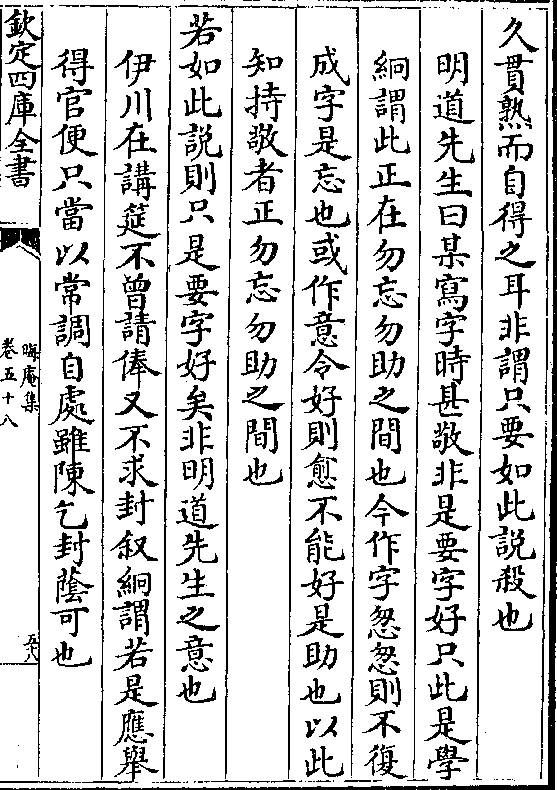 久貫熟而自得之耳非謂只要如此説殺也
明道先生曰某寫字時甚敬非是要字好只此是學
絅謂此正在勿忘勿助之間也今作字怱怱則不復
成字是忘也或作意令好則愈不能好是助也以此
知持敬者正勿忘勿助之間也
若如此説則只是要字好矣非明道先生之意也
伊川在講筵不曾請俸又不求封叙絅謂若是應舉
得官便只當以常調自處雖陳乞封蔭可也
欽定四庫全書
晦庵集
卷五十八
五八